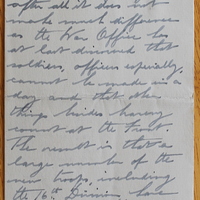 after all it does not
make much difference
as the War Office has
at last divined that
soldiers, officers especially,
cannot be made in a
day and that other
things besides bravery
count at the Front.
The result is that a
large number of the
new troops, including
the 16th Division have